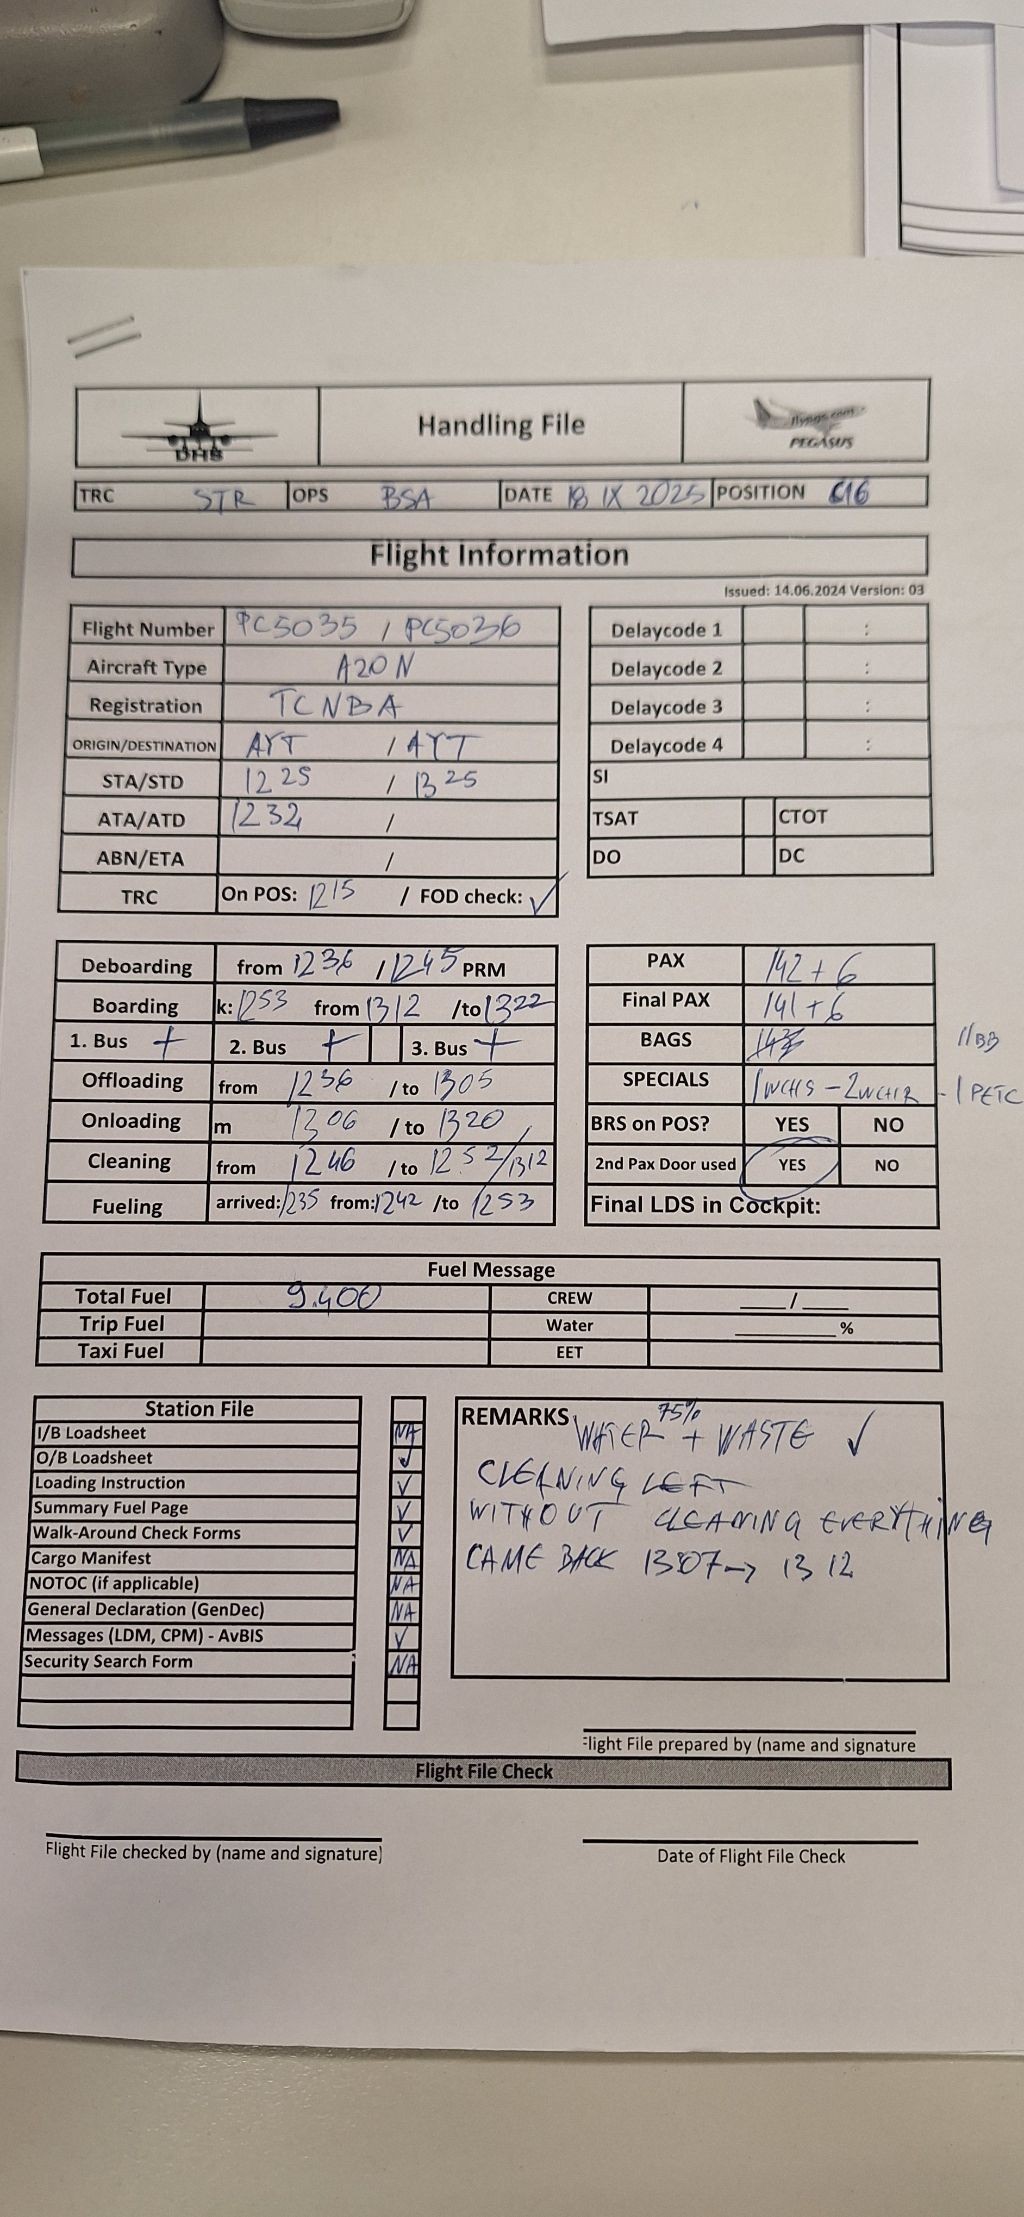 DHS
Handling File
flypgs.com
PEGASUS
TRC STR OPS BSA DATE 18 IX 2025 POSITION C16
Flight Information
Issued: 14.06.2024 Version: 03
Flight Number PC5035 / PC5036
Aircraft Type A20N
Registration TCNBA
ORIGIN/DESTINATION AYT / AYT
STA/STD 1225 / 1325
ATA/ATD 1232 /
ABN/ETA /
TRC On POS: 1215 / FOD check: ✓
Delaycode 1 :
Delaycode 2 :
Delaycode 3 :
Delaycode 4 :
SI
TSAT CTOT
DO DC
Deboarding from 1236 / 1245 PRM
Boarding k: 1253 from 1312 /to 1322
1. Bus + 2. Bus + 3. Bus +
Offloading from 1236 / to 1305
Onloading m 1306 / to 1320
Cleaning from 1246 / to 1252/1312
Fueling arrived: 1235 from: 1242 /to 1253
PAX 142+6
Final PAX 141+6
BAGS //BB
SPECIALS 1WCHS - 2WCHR - 1 PETC
BRS on POS? YES NO
2nd Pax Door used YES NO
Final LDS in Cockpit:
Fuel Message
Total Fuel 9.400 CREW ___/___
Trip Fuel Water ___%
Taxi Fuel EET
Station File
I/B Loadsheet NA
O/B Loadsheet ✓
Loading Instruction ✓
Summary Fuel Page ✓
Walk-Around Check Forms ✓
Cargo Manifest NA
NOTOC (if applicable) NA
General Declaration (GenDec) NA
Messages (LDM, CPM) - AvBIS ✓
Security Search Form NA
REMARKS 75%
WATER + WASTE ✓
CLEANING LEFT
WITHOUT CLEANING EVERYTHING
CAME BACK 1307 → 1312
Flight File prepared by (name and signature
Flight File Check
Flight File checked by (name and signature)
Date of Flight File Check